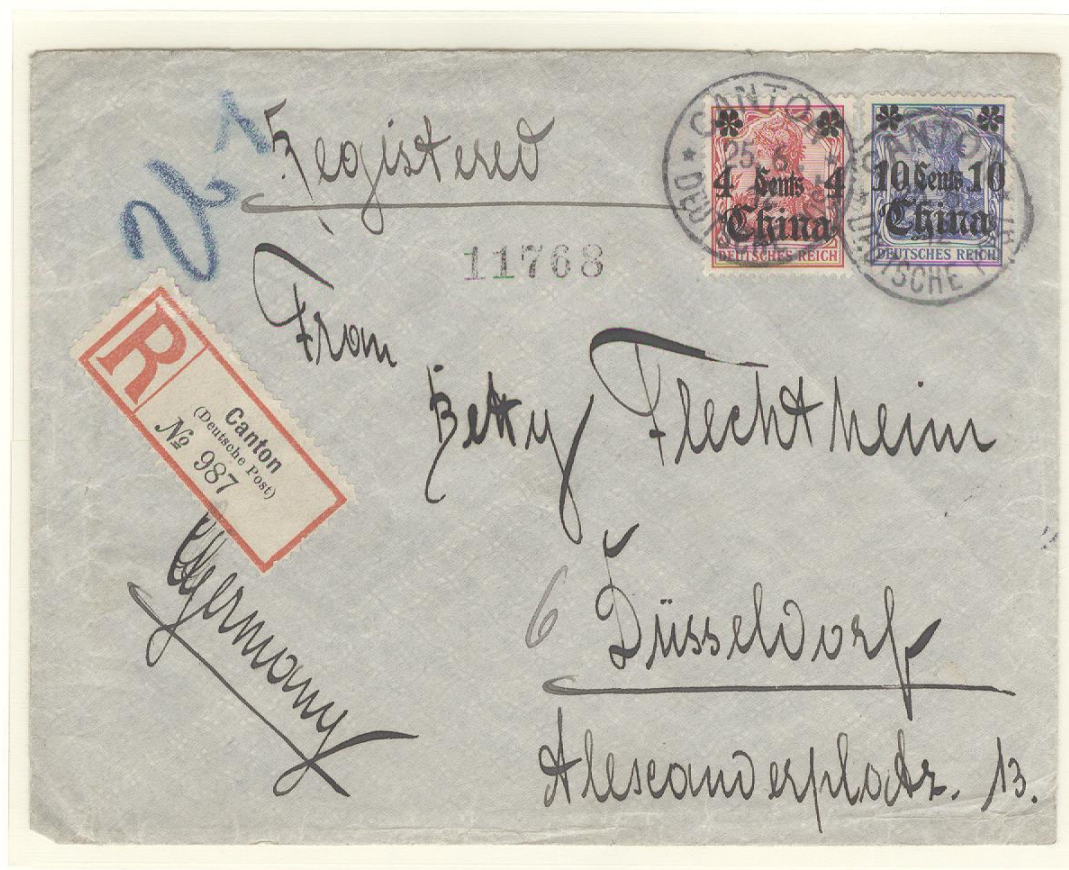 Registered
11768
CANTON
25 6
DEUTSCHE
4 Cents 4
China
DEUTSCHES REICH
CANTON
12
DEUTSCHE
10 Cents 10
China
DEUTSCHES REICH
R
Canton
(Deutsche Post)
№ 987
Frau
Betty Flechtheim
6 Düsseldorf
Alexanderplatz. 13.
Germany